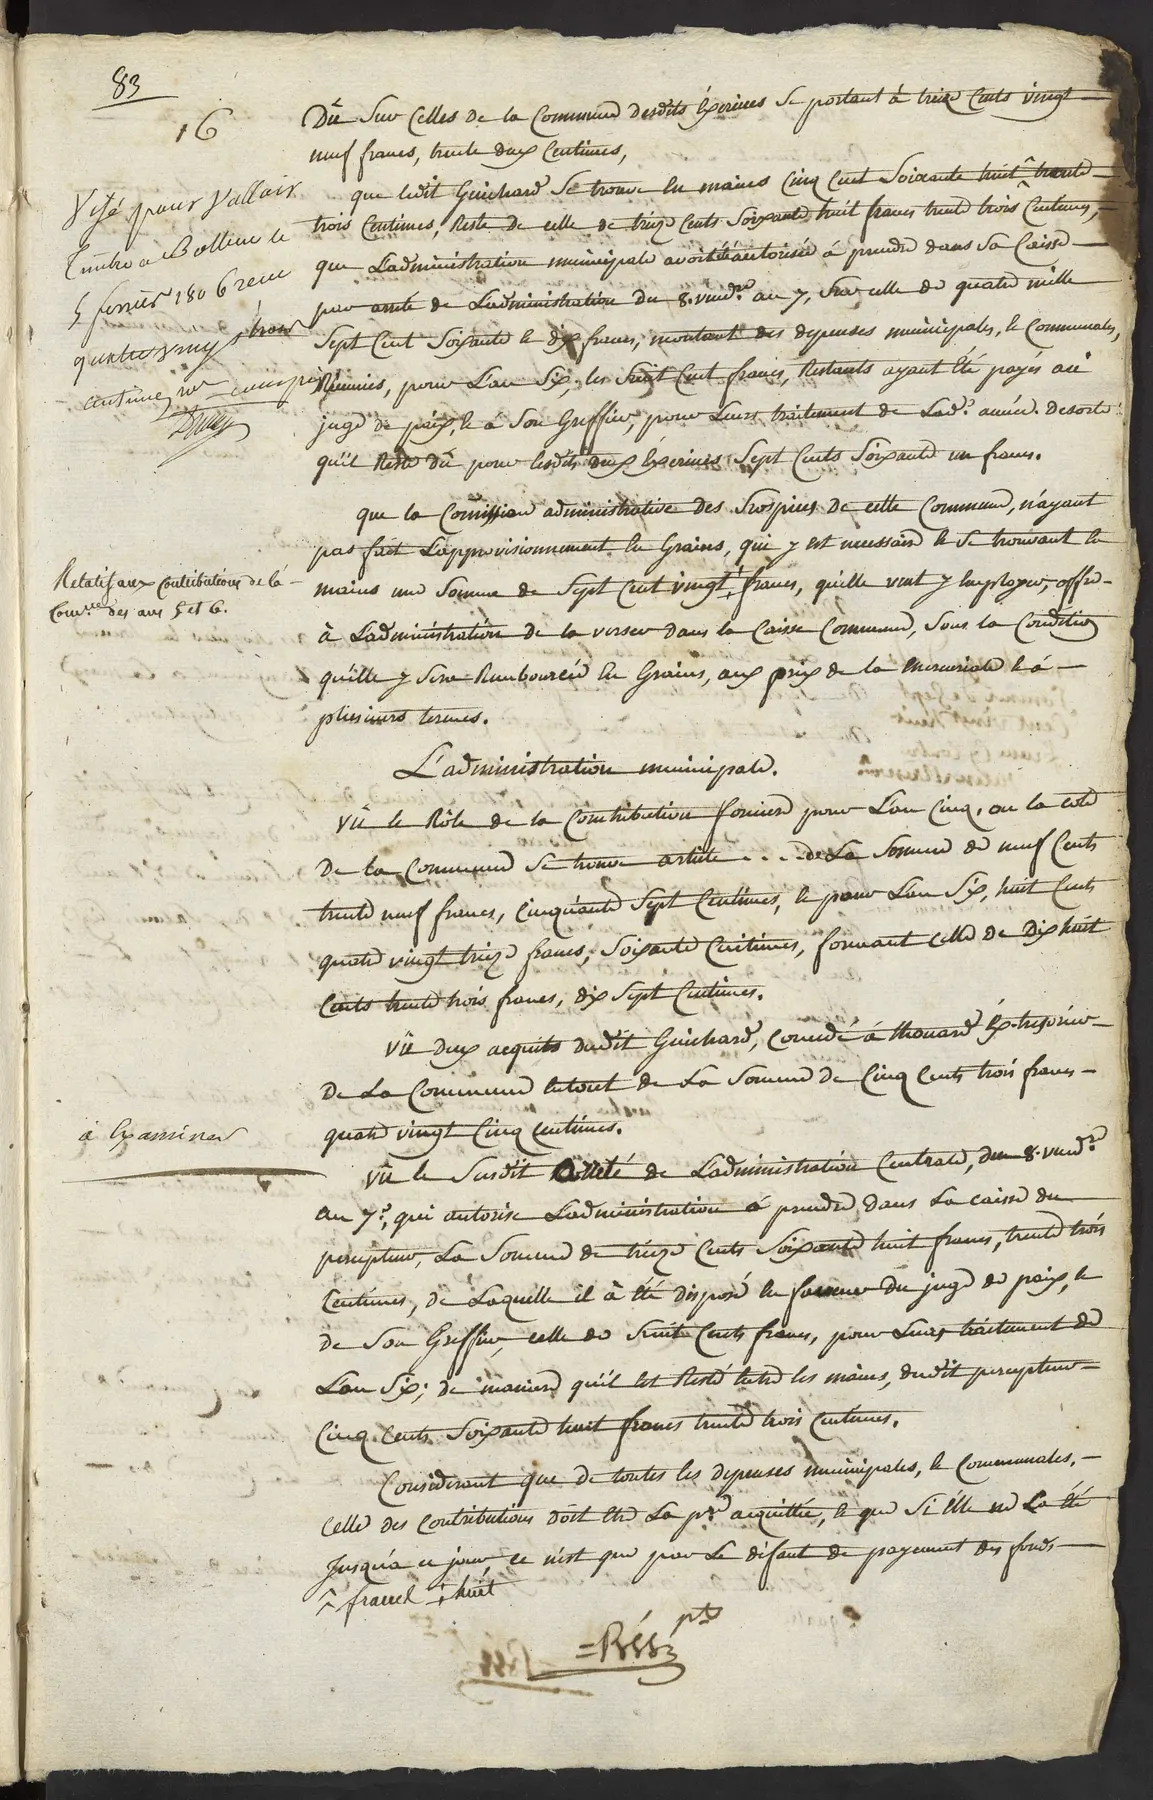 83
16
Visé pour Valloir
Timbre a Bollene le
5 fevrier 1806 recu
quatre vingt trois
centime
Dû Sur Celles de la Commune desdits Exercices Se portant à treize Cents vingt
neuf francs, trente deux Centimes,
que ledit Guichard Se trouve En mains Cinq Cent Soixante huit ^ trente
trois Centimes, Reste de celle de treize Cents Soixante huit francs trente trois Centimes,
que L'administration municipale avoit été autorisée à prendre dans Sa Caisse
par arrêté de L'administration du 8. vend.re an 7, Sur celle de quatre mille
Sept Cent Soixante & dix francs, montant des depenses municipales, & Communales,
Réunies, pour L'an Six, les huit Cent francs, Restants ayant été payés au
juge de paix, & à Son Greffier, pour Leurs traitement de Lad.e année. desorte
qu'il Reste Dû pour lesdits deux Exercices Sept Cents Soixante un francs.
que la Comission administrative des hospices de cette Commune, n'ayant
pas fait L'approvisionnement En Grains, qui y est necessaire & Se trouvant En
Relatif aux Contributions de la
Com.ne des ans 5 et 6.
mains une Somme de Sept Cent vingt ‡ francs, qu'elle veut y Employer, offre
à L'administration de la verser dans la Caisse Commune, Sous la Condition
qu'elle y Sera Remboursée En Grains, aux prix de la mercuriale & à
plusieurs termes.
L'administration municipale.
Vû le Rôle de la Contribution fonciere pour L'an Cinq, ou la cote
De la Commune Se trouve article . . . de La Somme de neuf Cents
trente neuf francs, Cinquante Sept Centimes, & pour L'an Six, huit Cents
quatre vingt treize francs, Soixante Centimes, formant Celle de Dix huit
Cents trente trois francs, dix Sept Centimes.
Vû deux acquits dudit Guichard, Concedé à thouard Ex-tresorier
De La Commune Entout de La Somme de Cinq Cents trois francs
quatre vingt Cinq Centimes.
à Examiner
Vû le Susdit Arrêté de L'administration Centrale, du 8. vend.re
an 7e, qui autorise L'administration à prendre dans La caisse du
percepteur, La Somme de treize Cents Soixante huit francs, trente trois
Centimes, de Laquelle il à été disposé En faveur du juge de paix, &
de Son Greffier, celle de huit Cents francs, pour Leurs traitement de
L'an Six; de maniere qu'il Est Resté Entre les mains, dudit percepteur
Cinq Cents Soixante huit francs trente trois Centimes.
Considerant que de toutes les depenses municipales, & Communales,
Celle des Contributions doit Etre La p.re acquittée, & que Si Elle ne La été
Jusqu'à ce jour, ce n'est que par Le défaut de payement des fonds
^ francs ‡ huit